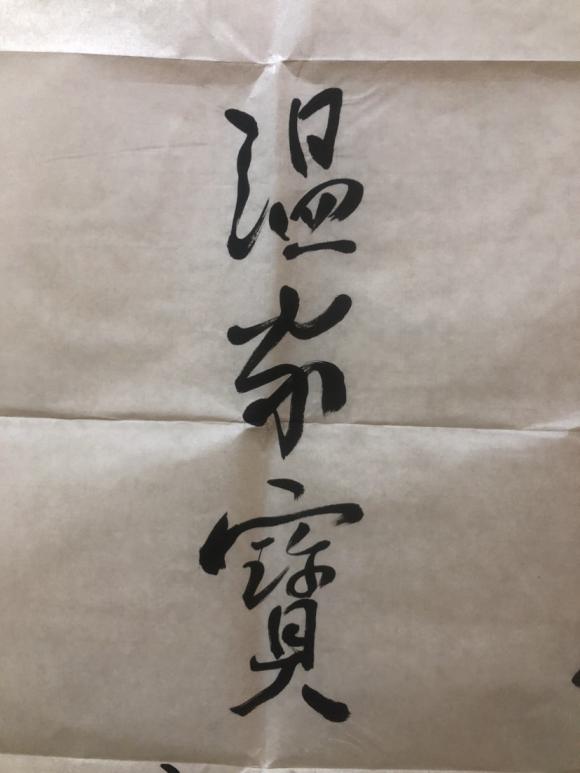 温家寶